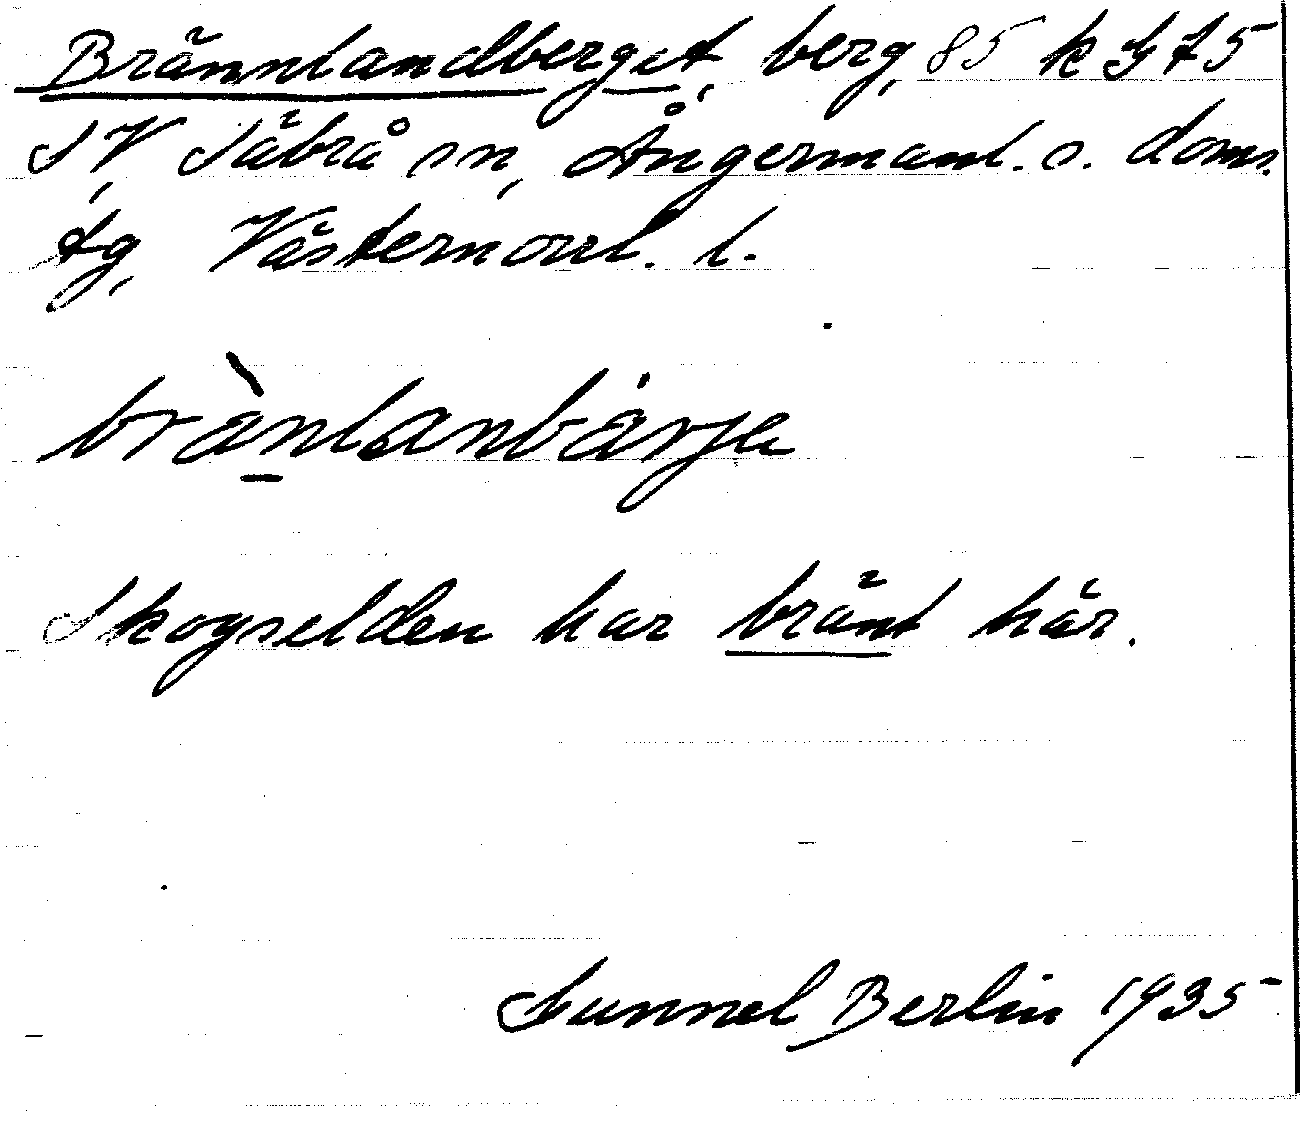 Brännlandberget, berg, 85 k G t 5
SV, Säbrå sn, Ångermanl. s. doms.
tg, Västernorrl. l.
brànlanbärje
Skogselden har bränt här.
Gunnel Berlin 1935